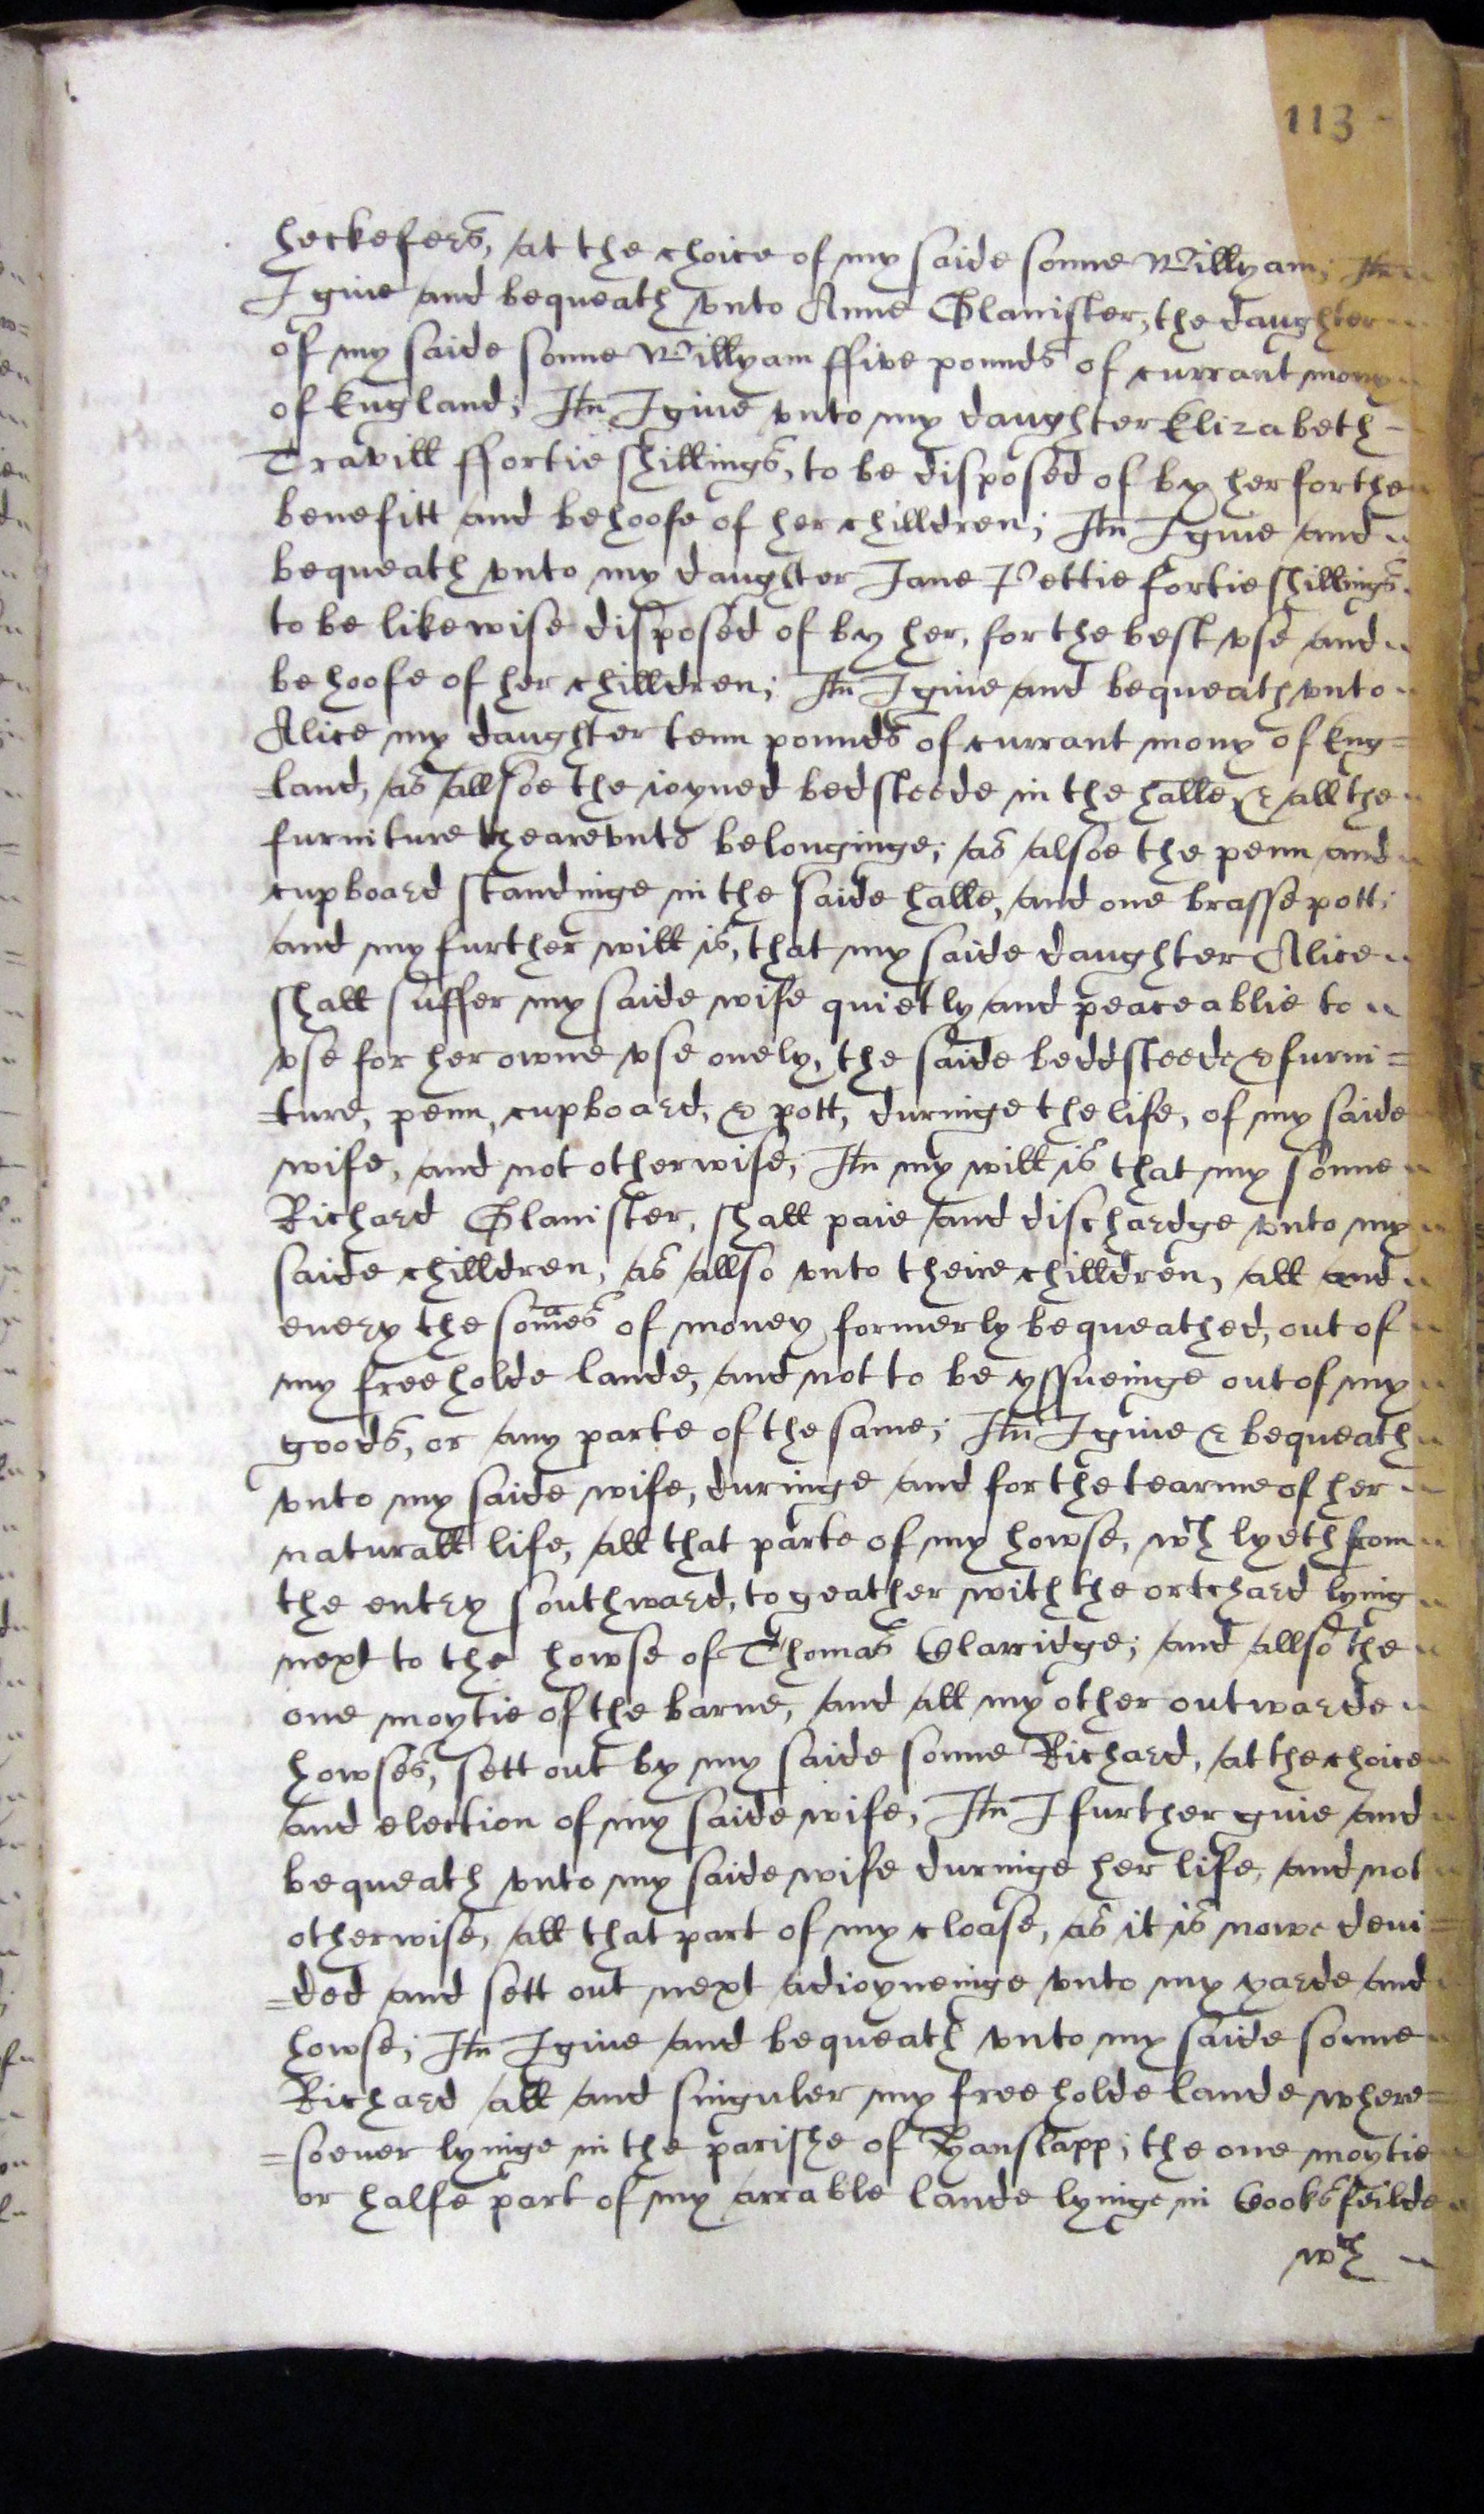 113
heckefers, at the choice of my saide sonne Willyam; Itn
I giue and bequeath vnto Anne Glanister, the daughter
of my saide sonne Willyam ffive pounds of currant mony
of England; Itn I giue vnto my daughter Elizabeth
Travill ffortie shillings, to be disposed of by her for the
benefitt and behoofe of her chilldren; Itn I giue and
bequeath vnto my daughter Jane Pettie fortie shillings
to be likewise disposed of by her, for the best vse and
behoofe of her chilldren; Itn I giue and bequeath vnto
Alice my daughter tenn pounds of currant mony of Eng=
=land, as allsoe the ioyned bedsteede in the halle & all the
furniture thearevnto belonginge; as alsoe the penn and
cupboard standinge in the saide halle, and one brasse pott;
and my further will is, that my saide daughter Alice
shall suffer my saide wife quietly and peaceablie to
vse for her owne vse onely, the saide beddsteede & furni=
=ture, penn, cupboard, & pott, duringe the life, of my saide
wife, and not otherwise; Itn my will is that my sonne
Richard Glanister, shall paie and dischardge vnto my
saide chilldren, as allso vnto theire chilldren, all and
euery the somes of money formerly bequeathed, out of
my freeholde lande, and not to be yssueinge out of my
goods, or any parte of the same; Itn I giue & bequeath
vnto my saide wife, duringe and for the tearme of her
naturall life, all that parte of my howse, wch lyeth from
the entry southward, togeather with the ortchard lying
next to the howse of Thomas Clarridge; and allso the
one moytie of the barne, and all my other outwarde
howses, sett out by my saide sonne Richard, at the choice
and election of my saide wife, Itn I further giue and
bequeath vnto my saide wife duringe her life, and not
otherwise, all that part of my cloase, as it is nowe deui=
=ded and sett out next adioyneinge vnto my yarde and
howse; Itn I giue and bequeath vnto my saide sonne
Richard all and singuler my freeholde lande where=
=soeuer lyinge in the parishe of Hanslapp; the one moytie
or halfe part of my arrable lande lyinge in Cooksfeilde
wch